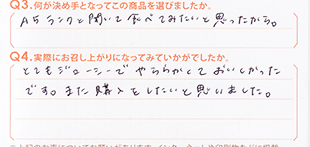 Q3.何が決め手となってこの商品を選びましたか。
A5ランクと聞いて食べてみたいと思ったから。
Q4.実際にお召し上がりになってみていかがでしたか。
とてもジューシーでやわらかくておいしかった
です。また購入をしたいと思いました。